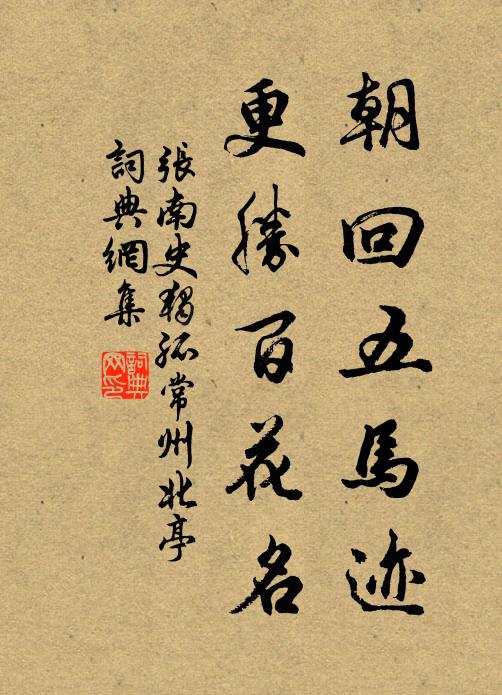 朝回五馬迹
更勝百花名
張南史獨孤常州北亭
詞典網集
詞典網印